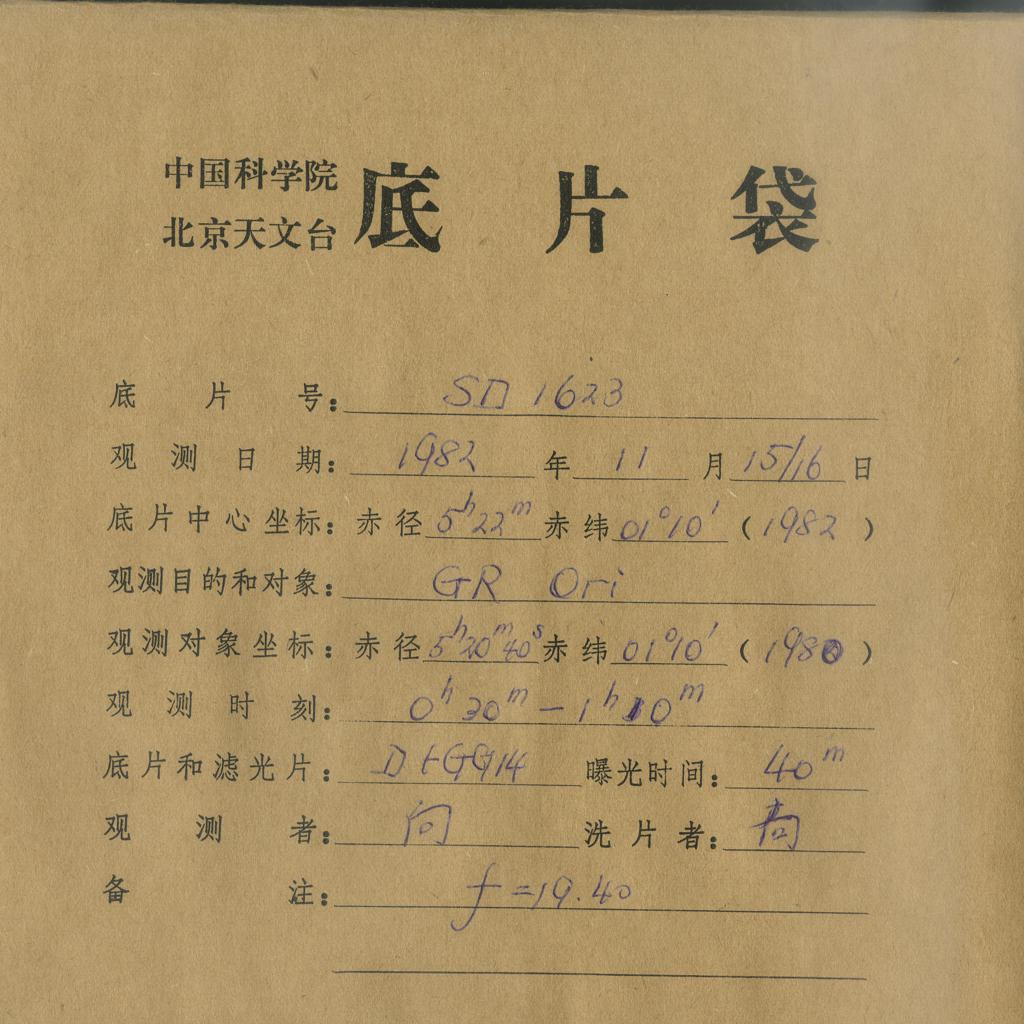 中国科学院
北京天文台
底片袋
底片号: SD 1623
观测日期: 1982 年 11 月 15/16 日
底片中心坐标: 赤径 5h22m 赤纬 01°10′ (1982)
观测目的和对象: GR Ori
观测对象坐标: 赤径 5h20m40s 赤纬 01°10′ (1980)
观测时刻: 0h30m — 1h10m
底片和滤光片: D+GG14 曝光时间: 40m
观测者:
洗片者:
备注: f = 19.40